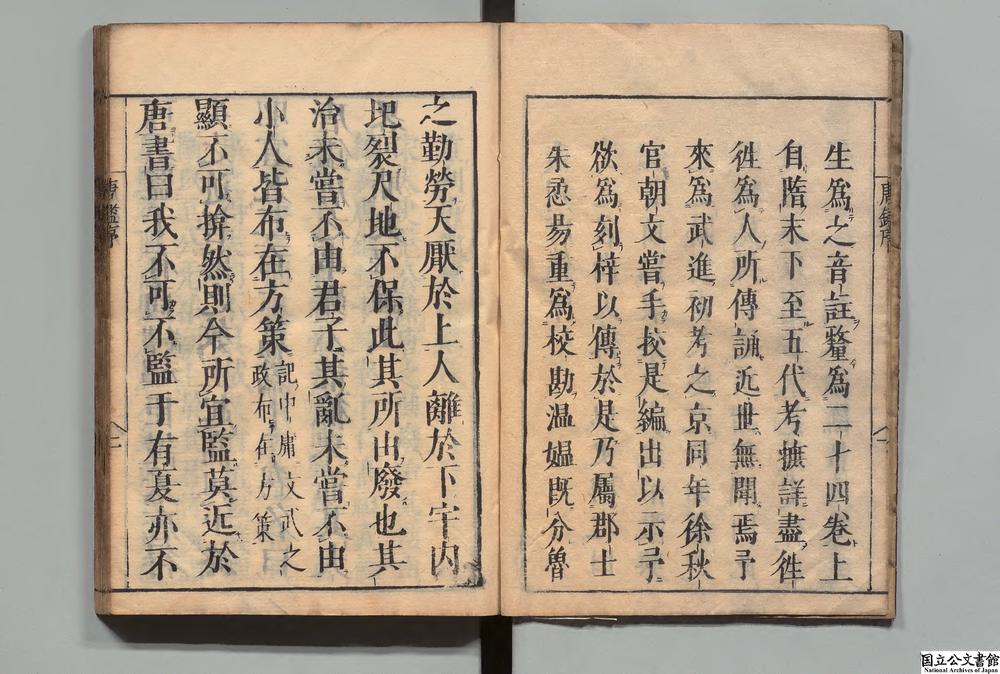 生爲之音註釐爲二十四卷上
自隋末下至五代考摭詳盡徃
徃爲人所傳誦近世無聞焉予
來爲武進初考之京同年徐秋
官朝文嘗手挍是編出以示予
欲爲刻梓以傳於是乃屬郡士
朱㤀昜重爲校勘温媪旣分魯
唐鑑序
之勤勞天厭於上人離於下宇内
圯裂尺地不保此其所由廢也其
治未嘗不由君子其亂未嘗不由
小人皆布在方策記中庸文武之政布在方策
顯不可揜然則今所宜監莫近於
唐書曰我不可不監于有夏亦不
唐鑑序
国立公文書館
National Archives of Japan